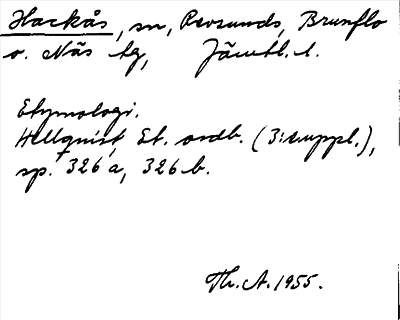 Hackås, sn, Revsunds, Brunflo
o. Näs tg, Jämtl. l.
Etymologi.
Hellquist, Et. ordb. (3:e uppl.),
sp. 326 a, 326 b.
Th. A. 1955.